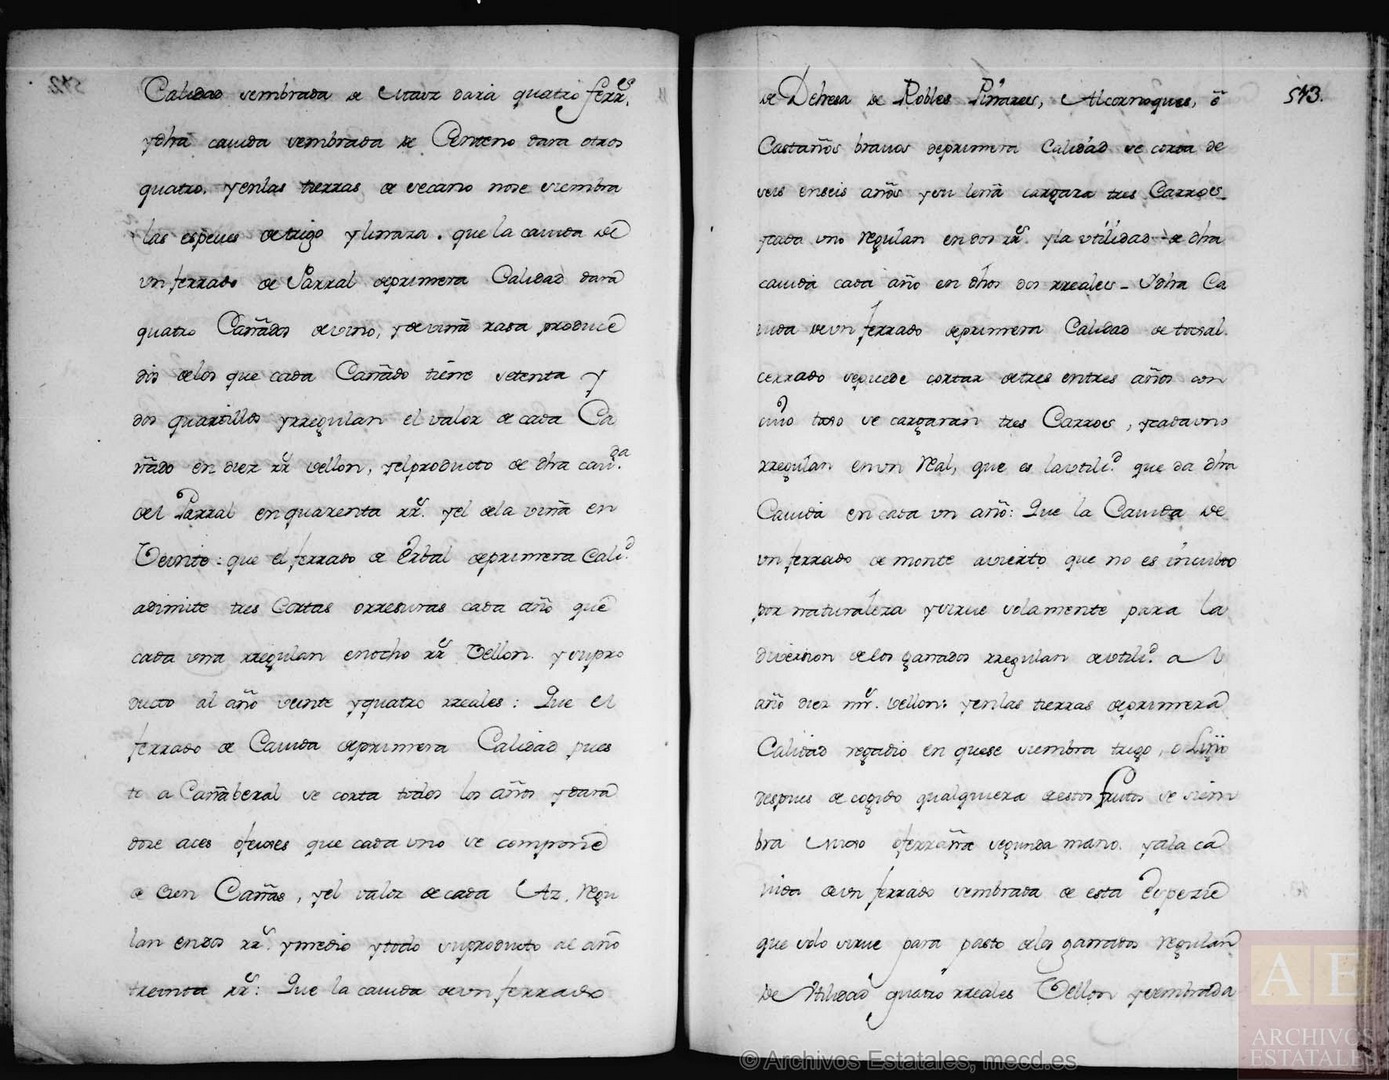 Calidad sembrada de Maiz dará quatro ferr.os
y dha cauida sembrada de Centeno dara otros
quatro, y en las tierras de secano no se siembra
las especies de trigo y linaza. que la cauida de
un ferrado de Parral de primera Calidad dará
quatro Cañados de vino, y de viña rasa produce
dos de los que cada Cañado tiene setenta y
dos quartillos y rregulan el valor de cada Ca
ñado en diez rr.s vellon, y el producto de dha cau.da
del Parral en quarenta rr.s y el de la viña en
Veinte: que el ferrado de Erbal de primera Cali.d
adimite tres Cortas o rresuras cada año que
cada una rregulan en ocho rr.s Vellon y su pro
ducto al año veinte y quatro rreales: Que el
ferrado de Cauida de primera Calidad pues
to a Cañaberal se corta todos los años y dara
doze aces o feixes que cada uno se compone
de Cien Cañas, y el valor de cada Az, regu
lan en dos rr.s y medio y todo su producto al año
treinta rr.s: Que la cauida de un ferrado
573.
de Dehesa de Robles Pinares, Alcornoques, ó
Castaños brauos de primera Calidad se corta de
seis en seis años y su leña cargara tres Carros
y cada uno regulan en dos rr.s y la vtilidad de dha
cauida cada año en dhos dos rreales - Y dha Ca
uida de un ferrado de primera Calidad de toxal
cerrado se puede cortar de tres en tres años con
cuio toxo se cargaran tres Carros, y cada uno
rregulan en un Real, que es la vtili.d que da dha
Cauida en cada un año: Que la Cauida de
un ferrado de monte auierto que no es inculto
por naturaleza y sirue solamente para la
diuersion de los ganados rregulan de vtili.d al
año diez mrs. vellon: y en las tierras de primera
Calidad regadio en que se siembra trigo, o Liño
despues de cogido qualquiera de estos frutos se siem
bra o ferraña segunda mano. y a la ca
uida de un ferrado sembrada de esta Espezie
que solo sirue para pasto de los ganados regulan
de Vtilidad quatro rreales Vellon y sembrada
© Archivos Estatales, mecd.es
AE
ARCHIVOS
ESTATALES